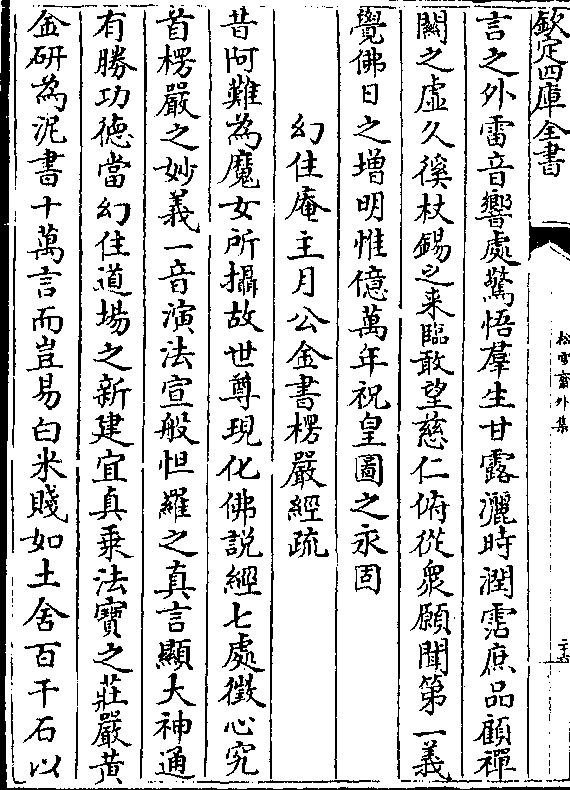 欽定四庫全書
松雪齋外集
二十六
言之外雷音響處驚悟羣生甘露灑時潤霑庶品顧禪
闗之虚久徯杖錫之来臨敢望慈仁俯從衆願聞第一義
覺佛日之增明惟億萬年祝皇圖之永固
幻住庵主月公金書楞嚴經疏
昔阿難為魔女所攝故世尊現化佛説經七處徵心究
首楞嚴之妙義一音演法宣般怛羅之真言顯大神通
有勝功德當幻住道場之新建宜真乗法寶之莊嚴黄
金研為泥書十萬言而豈易白米賤如土舍百千石以